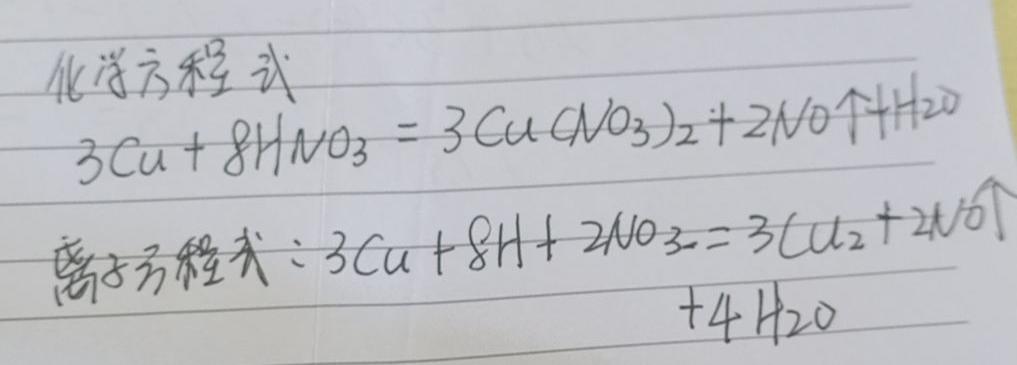 化学方程式
3Cu + 8HNO3 = 3Cu(NO3)2 + 2NO↑ + H2O
离子方程式：3Cu + 8H + 2NO3- = 3Cu2 + 2NO↑
+4H2O